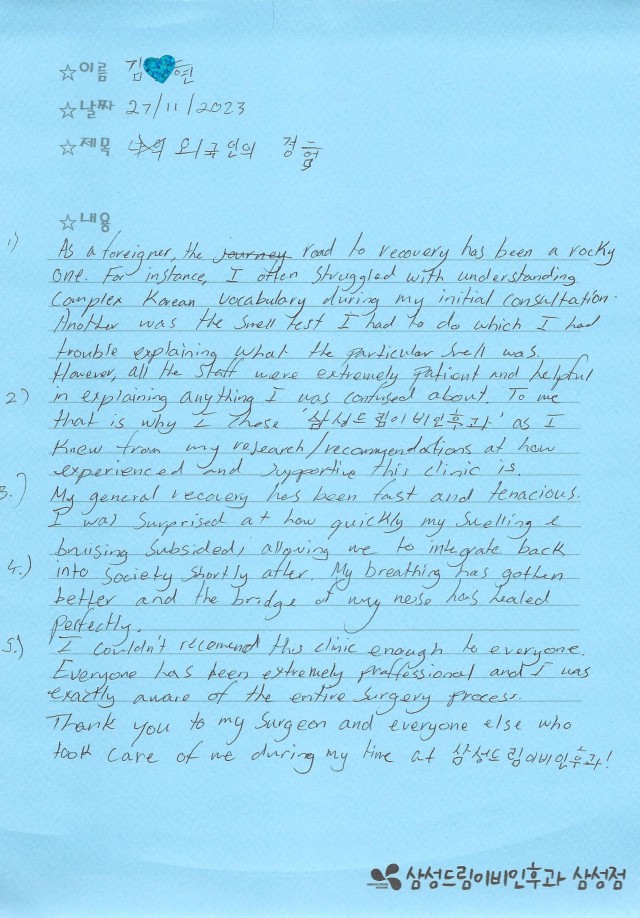 ☆이름 김 현
☆날짜 27/11/2023
☆제목 외국인의 경험
☆내용
1) As a foreigner, the journey road to recovery has been a rocky
one. For instance, I often struggled with understanding
Complex Korean vocabulary during my initial consultation.
Another was the smell test I had to do which I had
trouble explaining what the particular smell was.
However, all the staff were extremely patient and helpful
2) in explaining anything I was confused about. To me
that is why I chose '삼성드림이비인후과' as I
knew from my research/recommendations at how
experienced and supportive this clinic is.
3.) My general recovery has been fast and tenacious.
I was surprised at how quickly my swelling &
bruising subsided, allowing me to integrate back
4.) into society shortly after. My breathing has gotten
better and the bridge of my nose has healed
perfectly.
5.) I couldn't recomend this clinic enough to everyone.
Everyone has been extremely proffessional and I was
exactly aware of the entire surgery process.
Thank you to my surgeon and everyone else who
took care of me during my time at 삼성드림이비인후과!
삼성드림이비인후과 삼성점